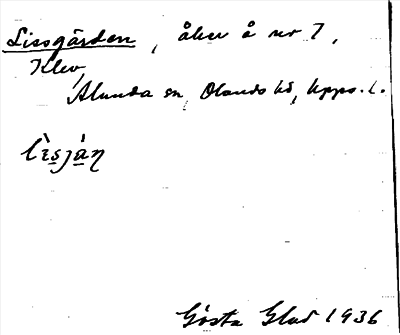 Lissgården, åker å nr 7,
Klev,
Alunda sn, Olands hd, Upps. l.
lìsjàn
Gösta Glad 1936